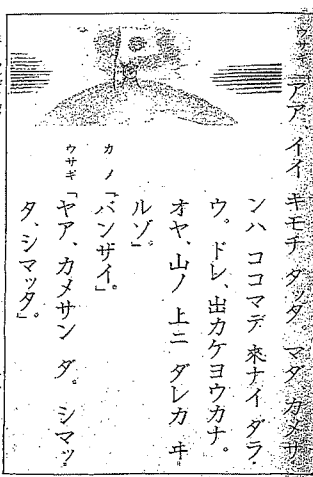 ウサギ「アア、イイ キモチ ダッタ。マダ カメサ
ンハ ココマデ 來ナイ ダラ
ウ。ドレ、出カケヨウカナ。
オヤ、山ノ 上ニ ダレカ ヰ
ルゾ」
カメ「バンザイ」。
ウサギ「ヤア、カメサン ダ。シマッ
タ、シマッタ」。